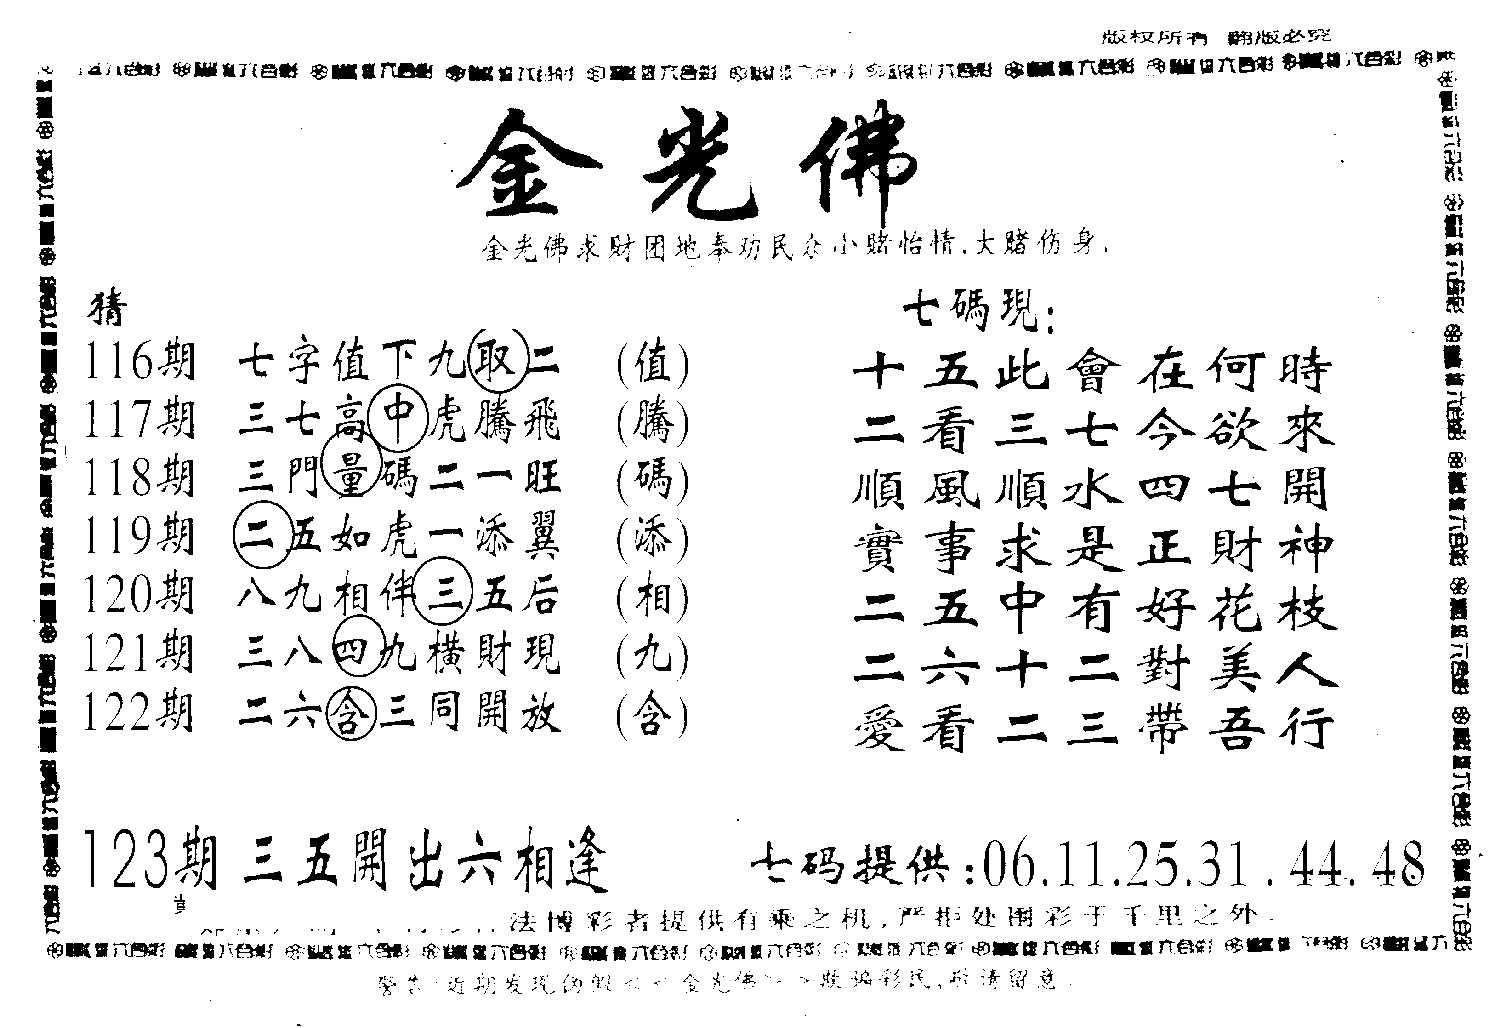 版权所有 翻版必究
金光佛
金光佛求财团地奉劝民众小赌怡情.大赌伤身.
猜
116期 七字值下九取二 (值)
117期 三七高中虎騰飛 (騰)
118期 三門量碼二一旺 (碼)
119期 二五如虎一添翼 (添)
120期 八九相伴三五后 (相)
121期 三八四九橫財現 (九)
122期 二六含三同開放 (含)
七碼現:
十五此會在何時
二看三七今欲來
順風順水四七開
實事求是正財神
二五中有好花枝
二六十二對美人
愛看二三帶吾行
123期 三五開出六相逢
七码提供:06.11.25.31.44.48
法博彩者提供有乘之机,严拒处围彩于千里之外.
警告 近期发现伪假 金光佛 欺骗彩民,敬请留意.